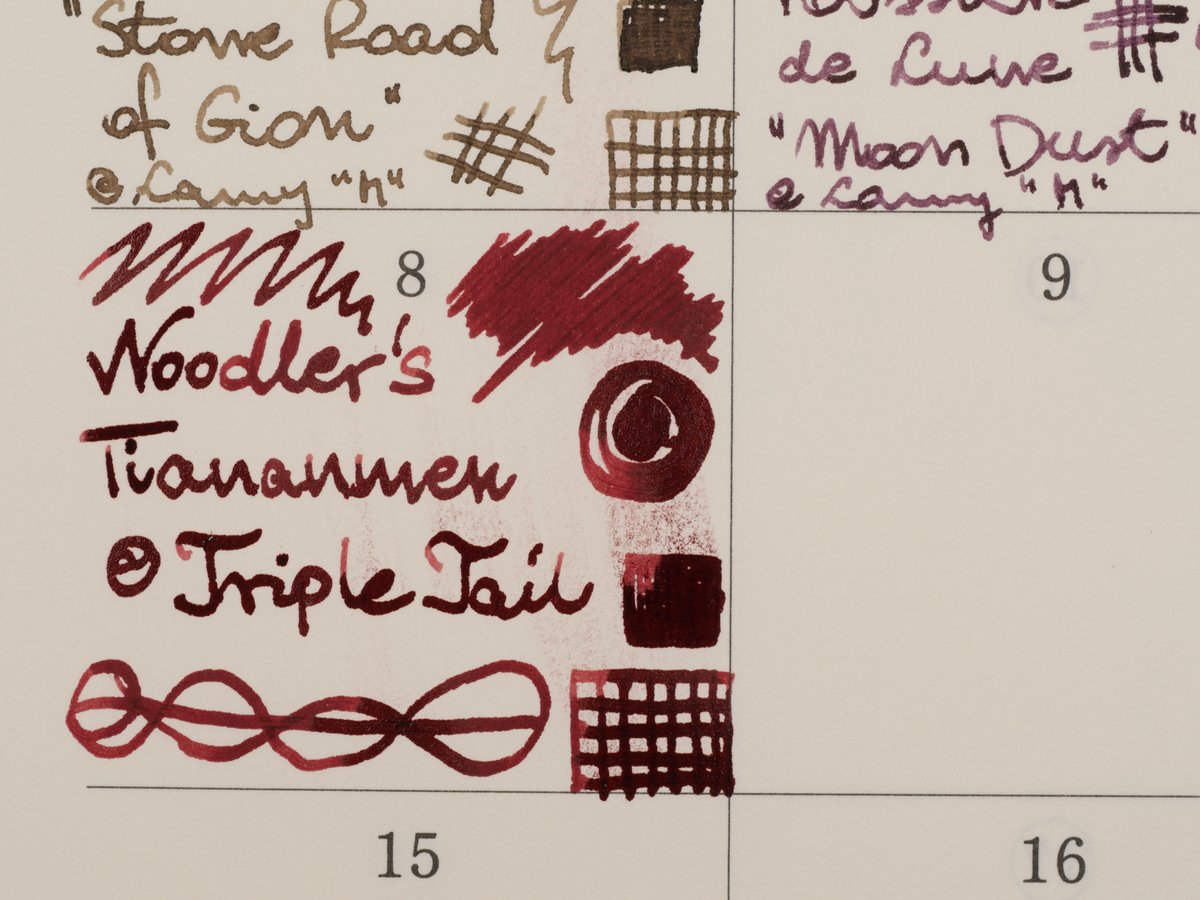 "Stone Road
of Gion"
@ Lamy "M"
de Lune
"Moon Dust"
@ Lamy "M"
8
Noodler's
Tiananmen
@ Triple Tail
9
15
16